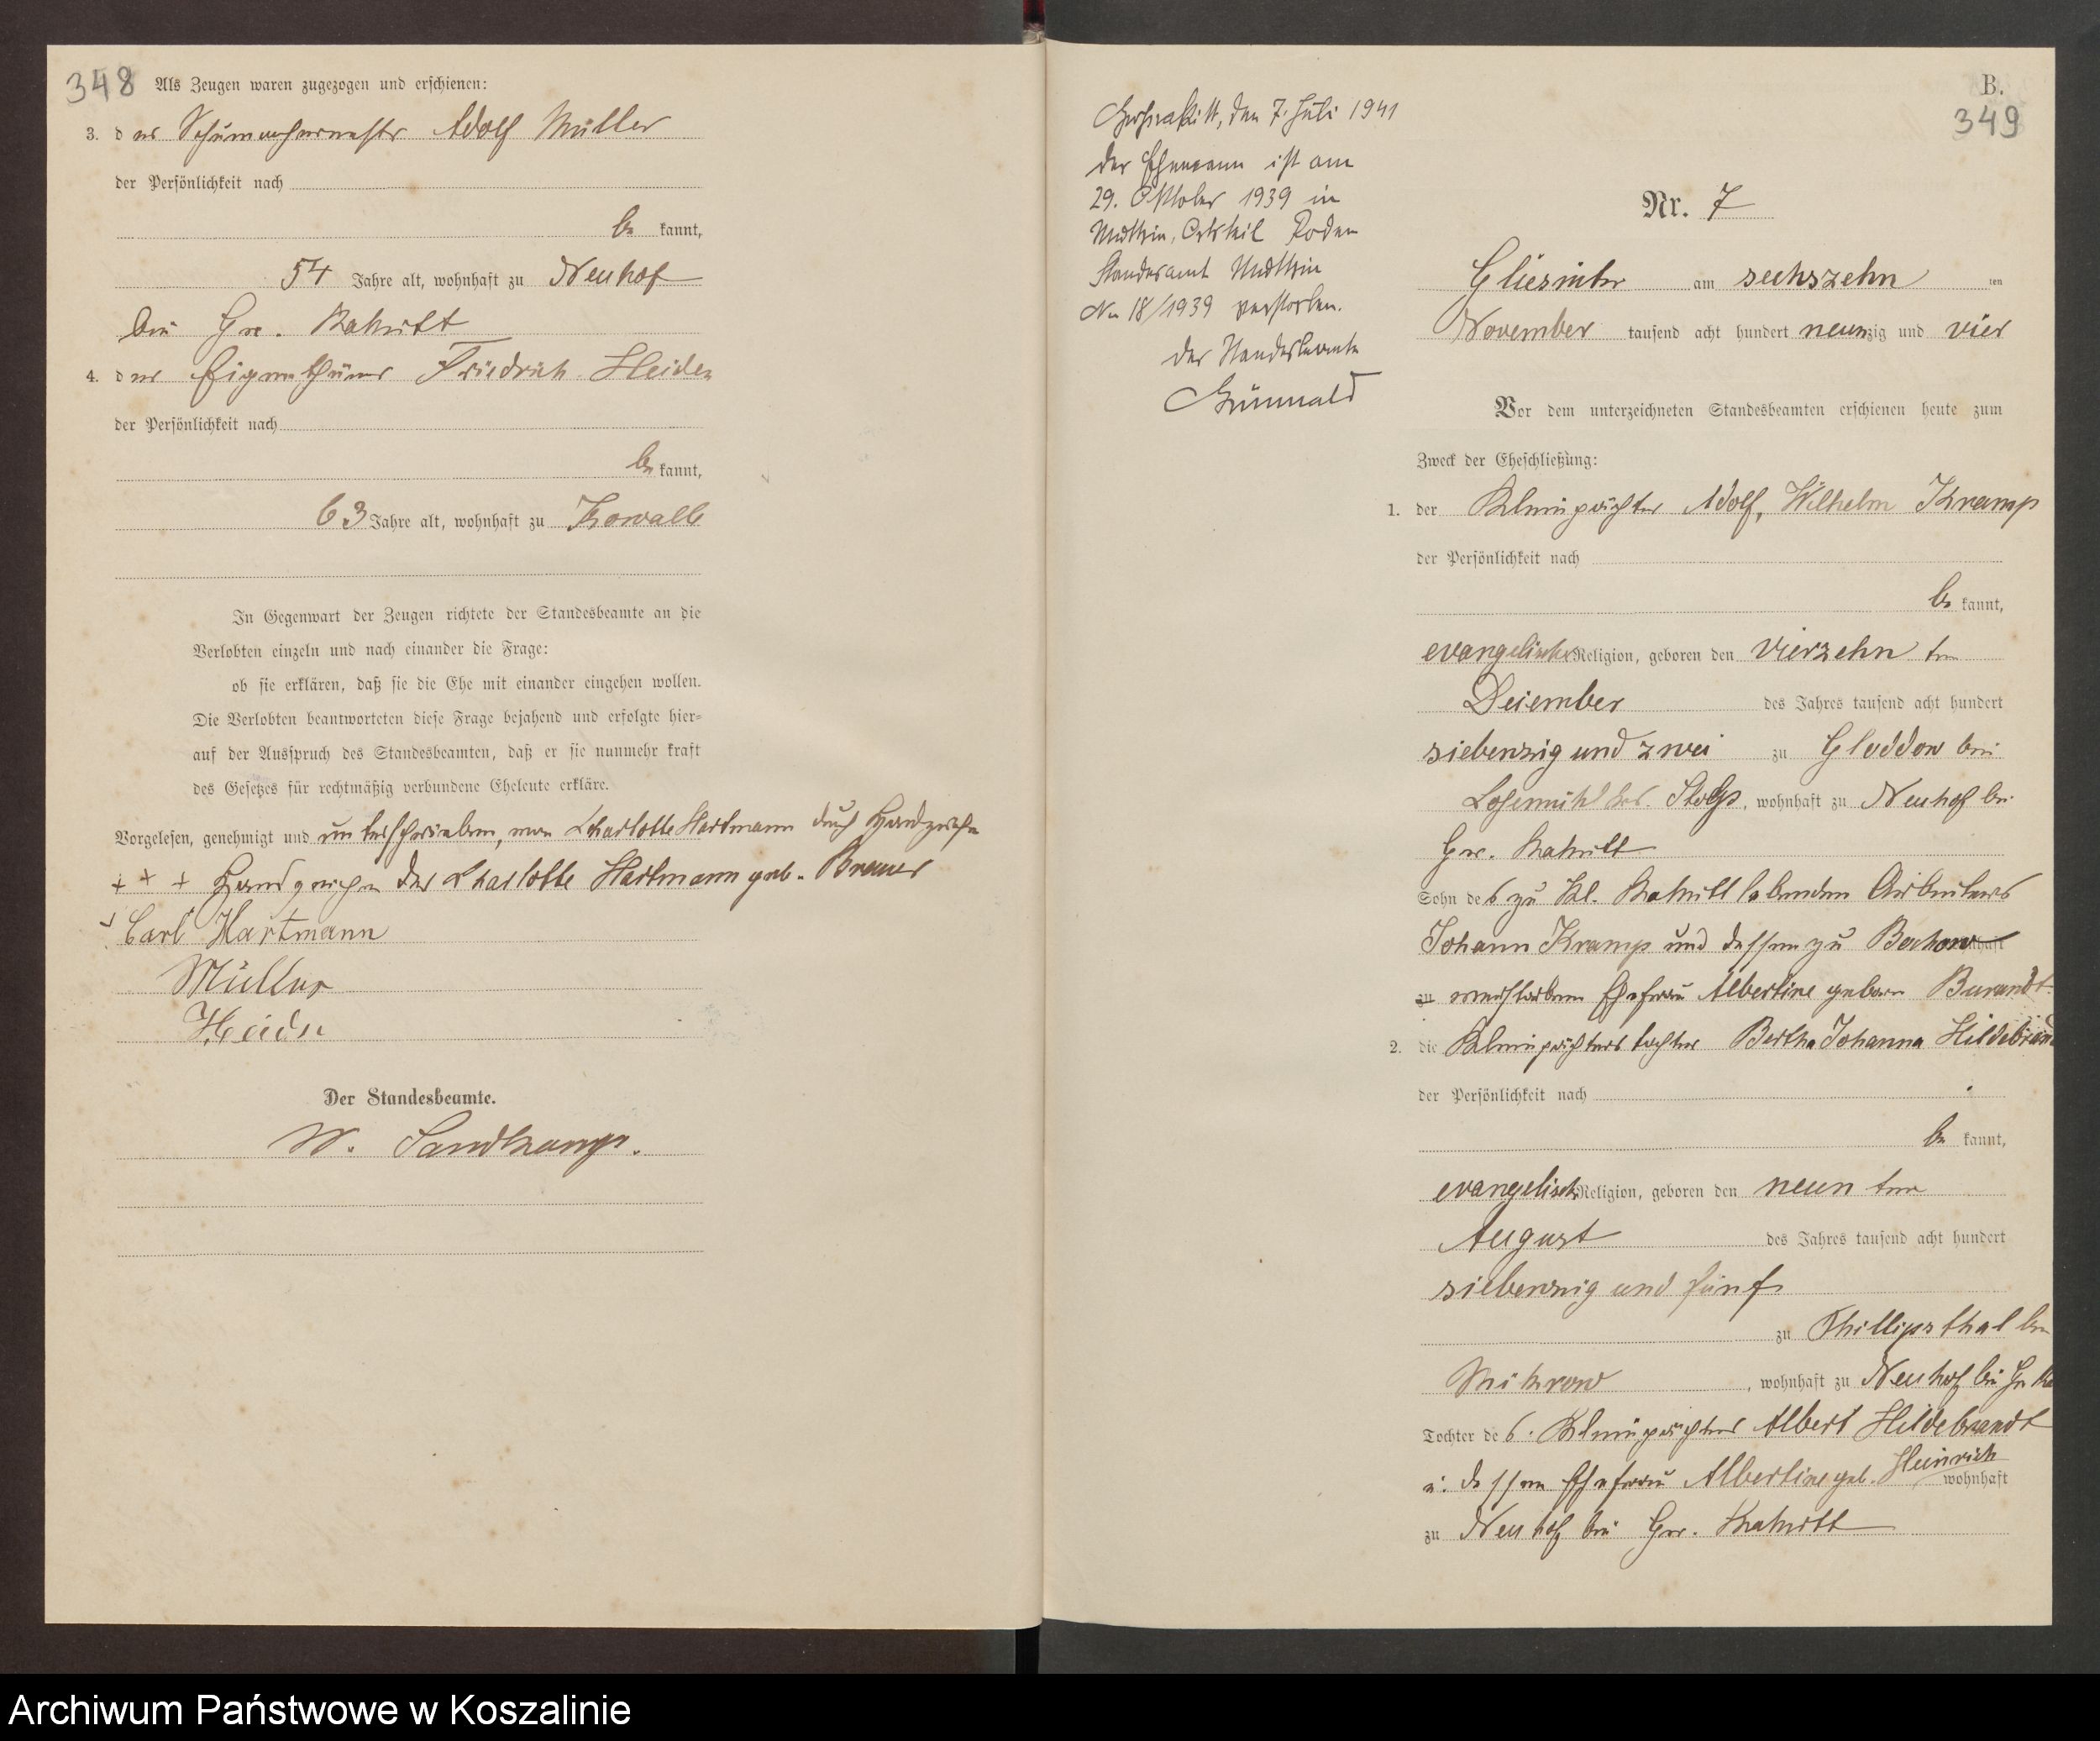 348 Als Zeugen waren zugezogen und erschienen:
3. der Schumachermeister Adolf Müller
der Persönlichkeit nach
be kannt,
54 Jahre alt, wohnhaft zu Neuhof
bei Gr. Rakitt
4. der Eigenthümer Friedrich Heiden
der Persönlichkeit nach
be kannt,
63 Jahre alt, wohnhaft zu Kowalk
In Gegenwart der Zeugen richtete der Standesbeamte an die
Verlobten einzeln und nach einander die Frage:
ob sie erklären, daß sie die Ehe mit einander eingehen wollen.
Die Verlobten beantworteten diese Frage bejahend und erfolgte hier=
auf der Ausspruch des Standesbeamten, daß er sie nunmehr kraft
des Gesetzes für rechtmäßig verbundene Eheleute erkläre.
Vorgelesen, genehmigt und unterschrieben, von Charlotte Hartmann durch Handzeichen
+ + + Handzeichen der Charlotte Hartmann geb.
Carl Hartmann
Müller
Heiden
Der Standesbeamte.
W. Sandkamp.
B.
349
den 7. Juli 1941
Der Ehemann ist am
29. Oktober 1939 in
Muttrin, Ortsteil Roden
Standesamt Muttrin
Nr 18/1939 verstorben.
Der Standesbeamte
Grünwald
Nr. 7
Gliesnitz am sechszehn ten
November tausend acht hundert neunzig und vier
Vor dem unterzeichneten Standesbeamten erschienen heute zum
Zweck der Eheschließung:
1. der Kleinpächter Adolf, Wilhelm Kramp
der Persönlichkeit nach
be kannt,
evangelischer Religion, geboren den vierzehn ten
Dezember des Jahres tausend acht hundert
siebenzig und zwei zu Gloddow bei
Stolp, wohnhaft zu Neuhof bei
Gr. Rakitt
Sohn des zu Kl. Rakitt lebenden Arbeiters
Johann Kramp und dessen zu Bochow wohnhaft
zu verstorbenen Ehefrau Albertine geboren Burandt.
2. die Kleinpächterstochter Bertha Johanna Hildebrand
der Persönlichkeit nach
be kannt,
evangelisch Religion, geboren den neun ten
August des Jahres tausend acht hundert
siebenzig und fünf
zu Phillipsthal bei
Mikrow, wohnhaft zu Neuhof bei Gr. Ra
Tochter des Kleinpächters Albert Hildebrandt
u. dessen Ehefrau Albertine geb. Heinrich wohnhaft
zu Neuhof bei Gr. Rakitt
Archiwum Państwowe w Koszalinie